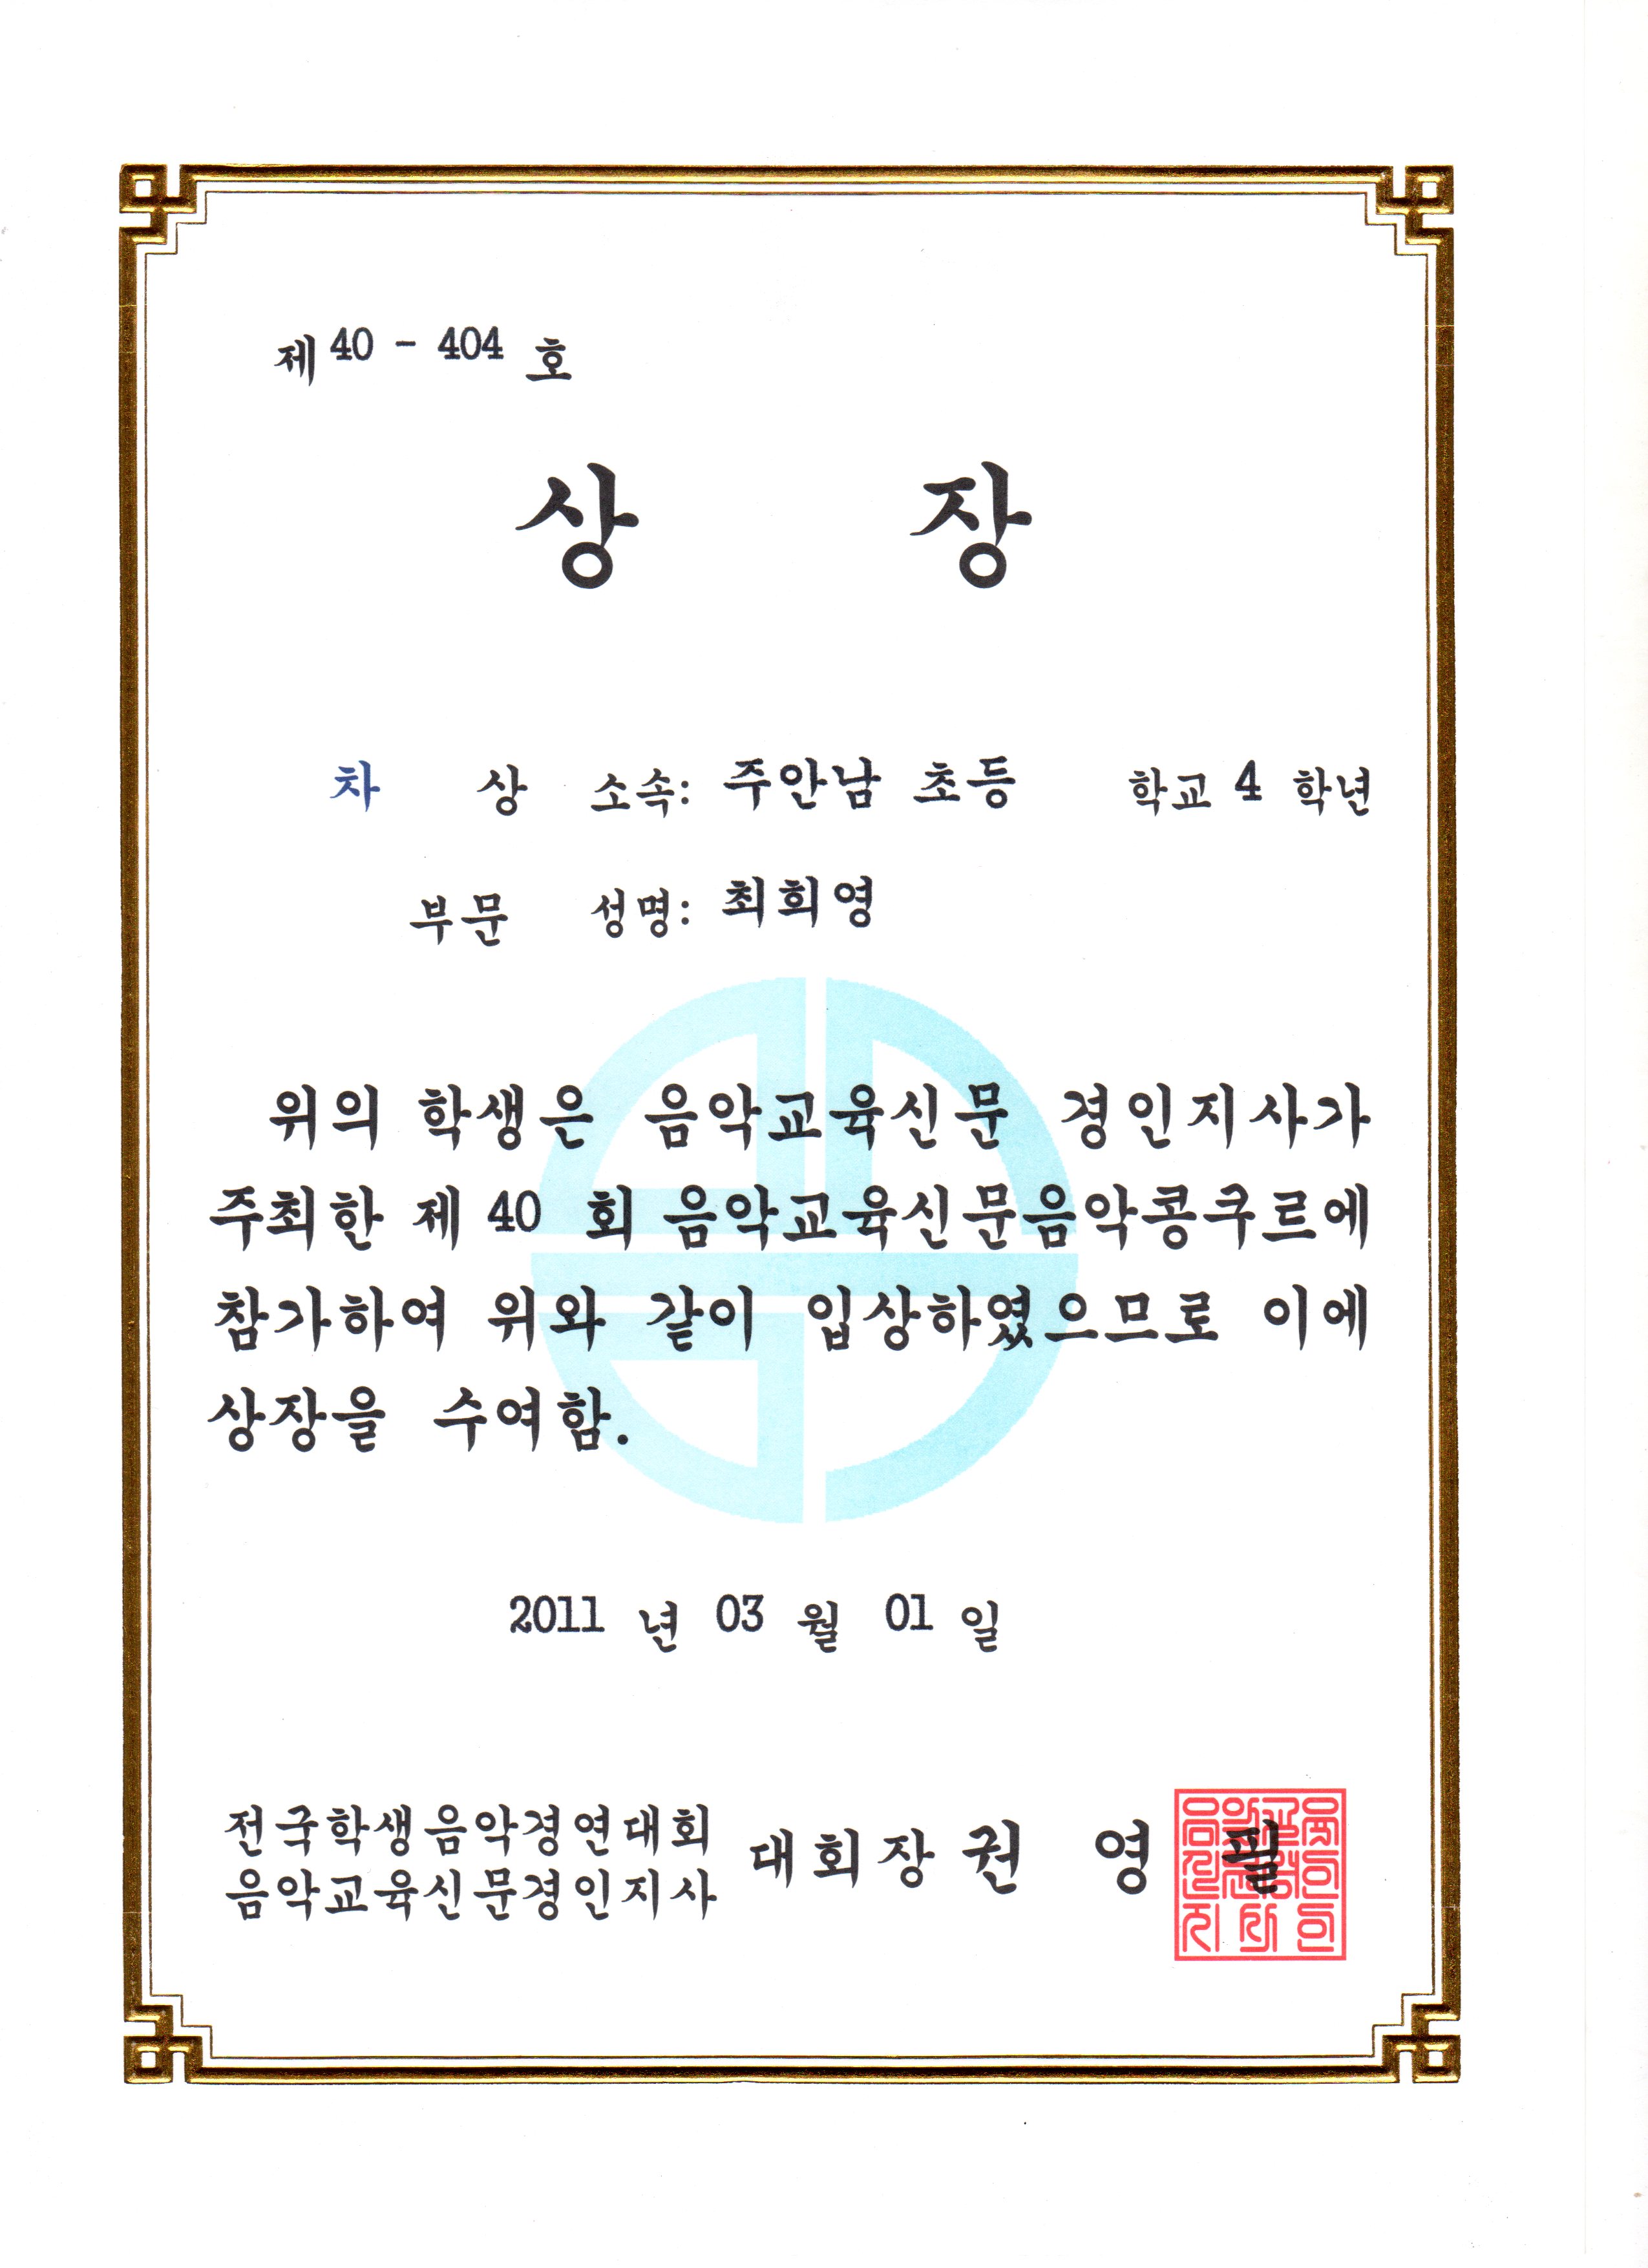 제 40 - 404 호
상 장
차 상 소속: 주안남 초등 학교 4 학년
부문 성명: 최희영
위의 학생은 음악교육신문 경인지사가
주최한 제 40 회 음악교육신문음악콩쿠르에
참가하여 위와 같이 입상하였으므로 이에
상장을 수여함.
2011 년 03 월 01 일
전국학생음악경연대회
음악교육신문경인지사
대회장 권 영 필